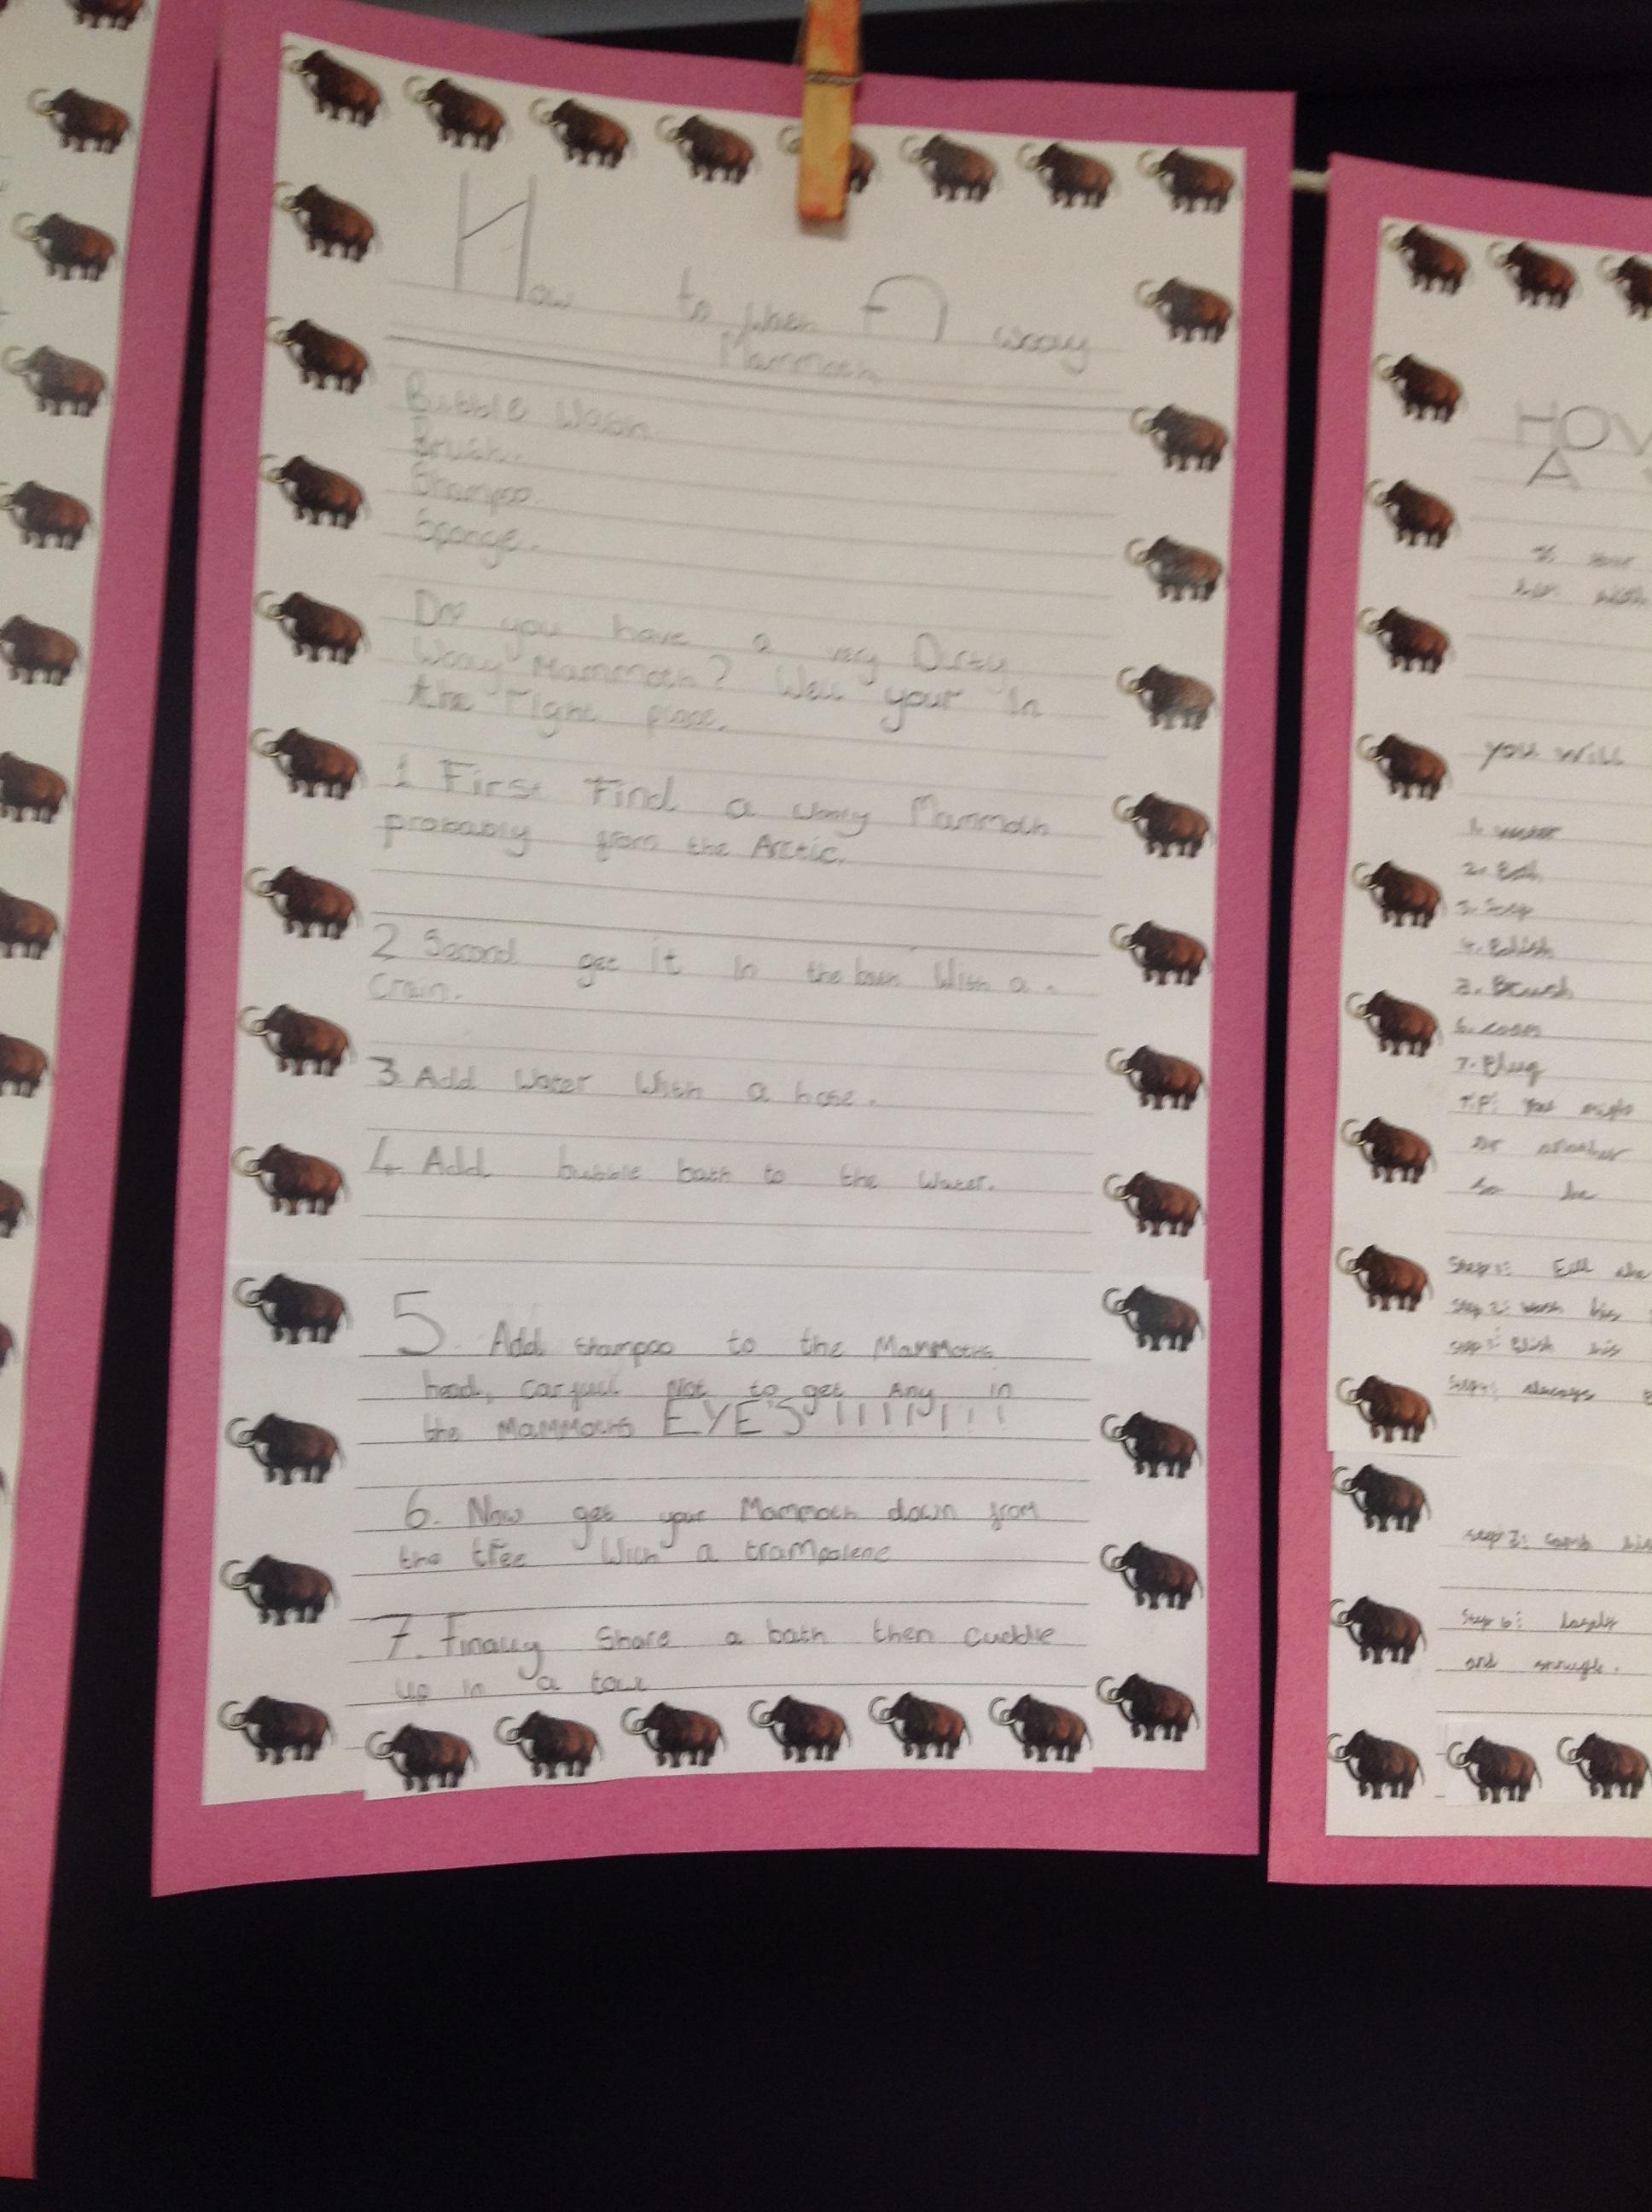 How to Wash A wooly
Mammoth
Bubble Wash
Brush.
Shampoo
Sponge.
Do you have a very Dirty
Wooly Mammoth? Well your In
the right place.
1 First Find a wooly Mammoth
probably from the Arctic.
2 Second get it In the bath With a
Crain.
3 Add Water With a hose.
4 Add bubble bath to the Water.
5. Add shampoo to the Mammoths
head, carfull Not to get Any in
the MaMMoths EYE'S !!!!!!!!
6. Now get your Mammoth down from
the tree With a trampolene
7. Finally Share a bath then cuddle
up in a towl
HOW
A
you will
1. water
2. Bath
3. Soap
4. Polish
5. Brush
6. comb
7. Plug
TIP: You might
or another
so he
Step 1: Fill the
Step 2: Wash his
Step 4: always
Step 5: comb his
Step 6: lastly
and snuggle.